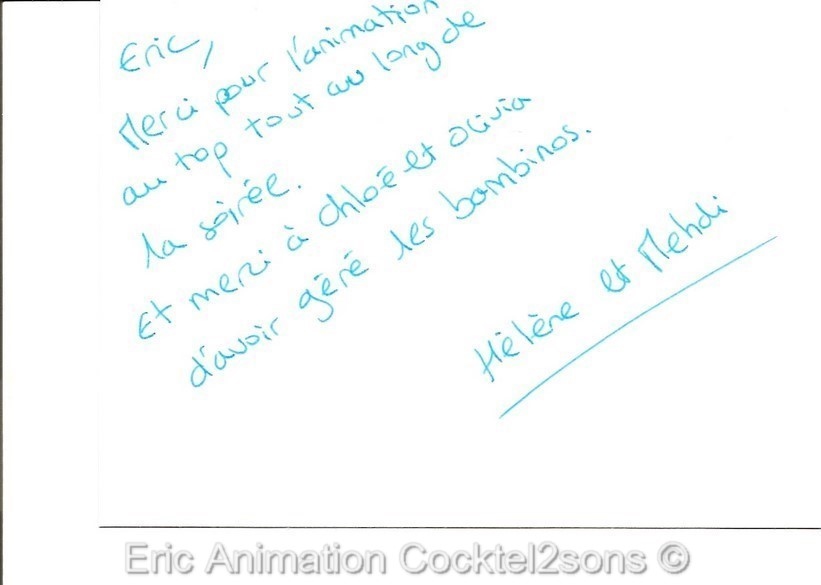 Eric,
Merci pour l'animation
au top tout au long de
la soirée.
Et merci à Chloé et Olivia
d'avoir géré les bambinos.
Hélène et Mehdi
Eric Animation Cocktel2sons ©